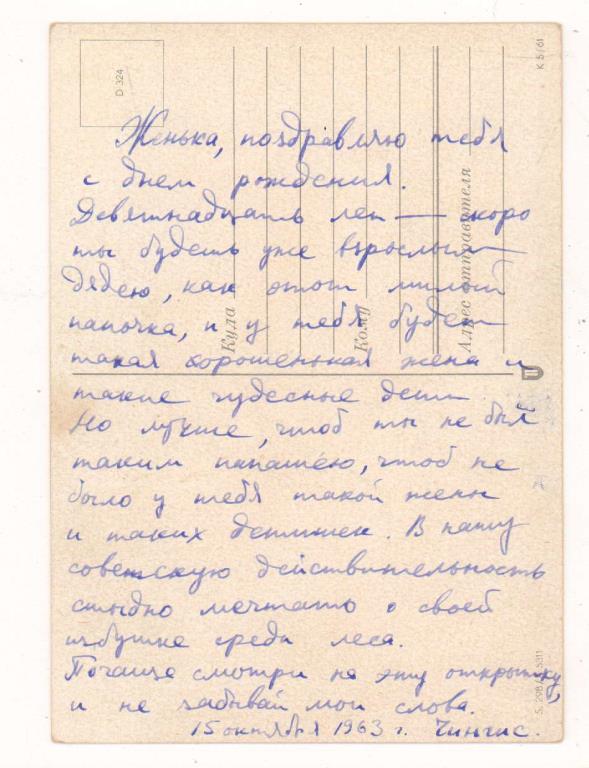 D 324
K 5/61
Женька, поздравляю тебя
с днем рождения.
Девятнадцать лет — скоро
ты будешь уже взрослым
дядею, как этот милый
папочка, и у тебя будет
такая хорошенькая жена и
такие чудесные дети.
Но лучше, чтоб ты не был
таким папашею, чтоб не
было у тебя такой жены
и таких детишек. В нашу
советскую действительность
стыдно мечтать о своей
избушке среди леса.
Почаще смотри на эту открытку,
и не забывай мои слова.
15 октября 1963 г. Чингис.
Куда
Кому
Адрес отправителя